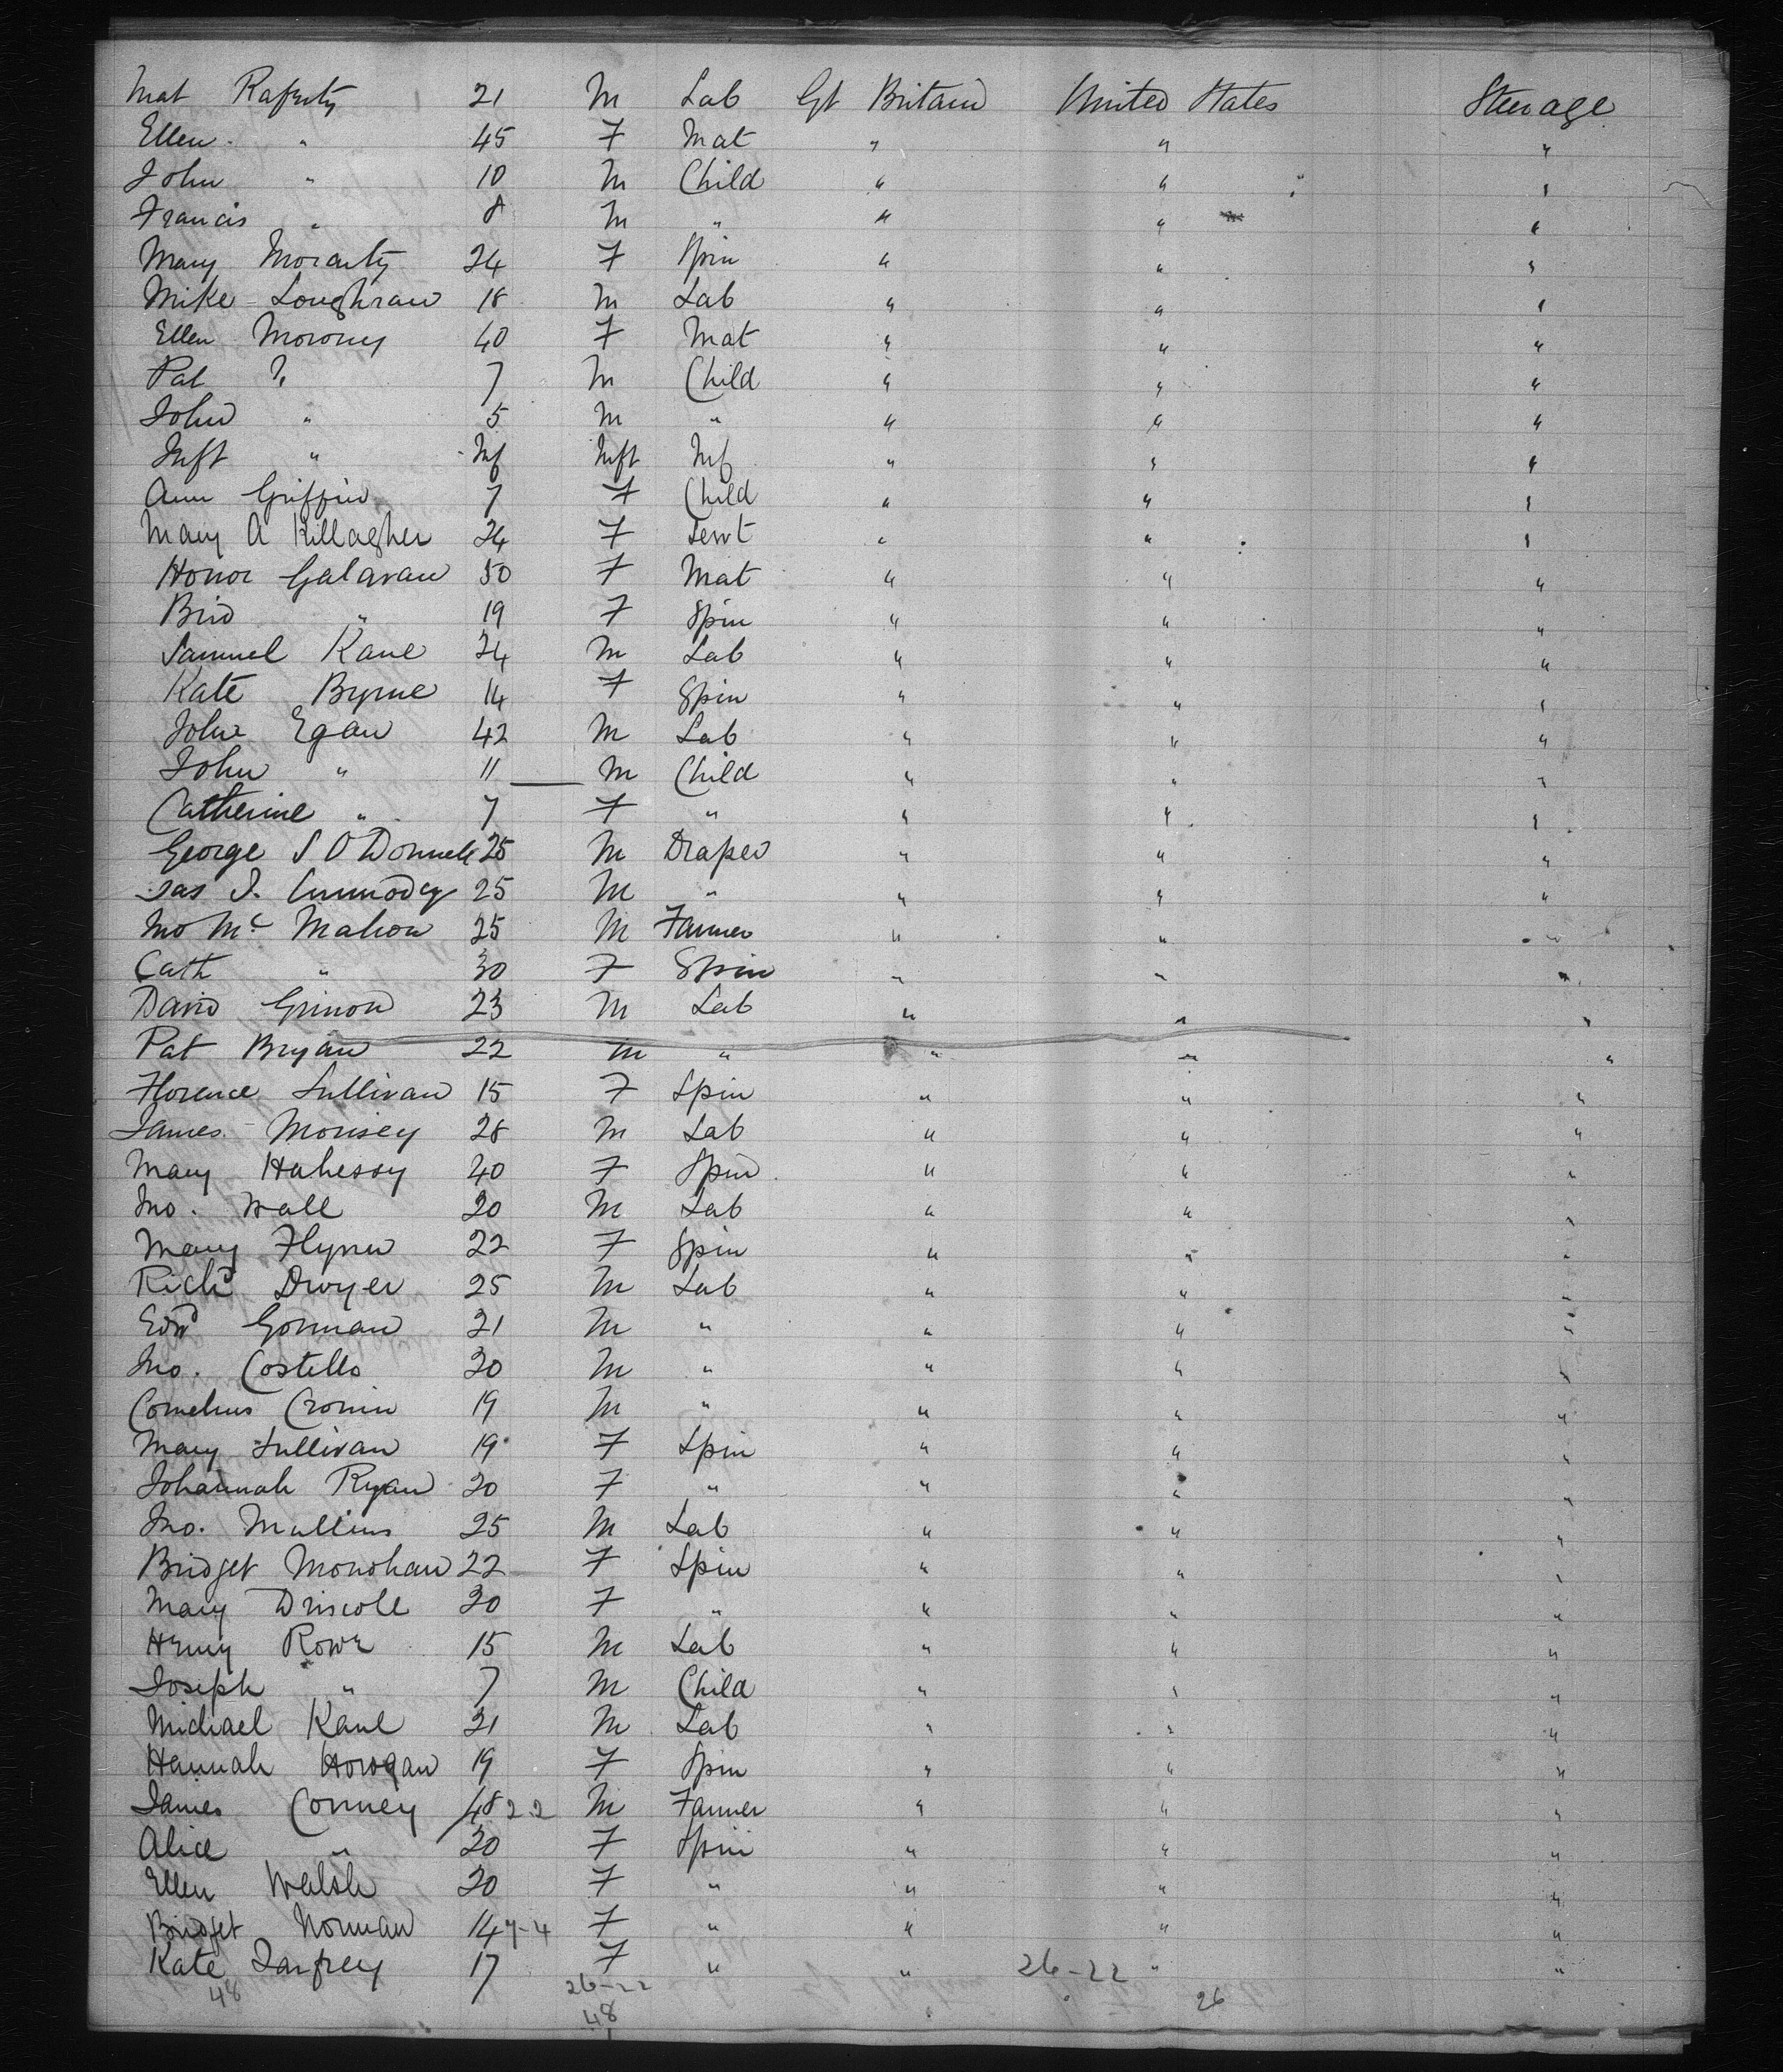 Mat Raferty 21 M Lab Gt Britain United States Steerage
Ellen " 45 F Mat " " "
John " 10 M Child " " "
Francis " 8 M " " " "
Mary Moriarty 24 F Spin " " "
Mike Loughran 18 M Lab " " "
Ellen Moroney 40 F Mat " " "
Pat " 7 M Child " " "
John " 5 M " " " "
Inft " Inf Inft Inf " " "
Ann Griffin 7 F Child " " "
Mary A Killagher 24 F Servt " " "
Honor Galavan 50 F Mat " " "
Brid " 19 F Spin " " "
Samuel Kane 24 M Lab " " "
Kate Byrne 14 F Spin " " "
John Egan 42 M Lab " " "
John " 11 M Child " " "
Catherine " 7 F " " " "
George S O'Donnell 25 M Draper " " "
Jas J. 25 M " " " "
Jno Mc Mahon 25 M Farmer " " "
Cath " 30 F Spin " " "
David 23 M Lab " " "
Pat Bryan 22 M " " " "
Florence Sullivan 15 F Spin " " "
James Morisey 28 M Lab " " "
Mary Hahessy 40 F Spin " " "
Jno. Wall 20 M Lab " " "
Mary Flynn 22 F Spin " " "
Richd Dwyer 25 M Lab " " "
Edwd Gorman 21 M " " " "
Jno. Costello 30 M " " " "
Cornelius Cronin 19 M " " " "
Mary Sullivan 19 F Spin " " "
Johannah Ryan 20 F " " " "
Jno. Mullins 25 M Lab " " "
Bridget Monohan 22 F Spin " " "
Mary Driscoll 30 F " " " "
Henry Rowe 15 M Lab " " "
Joseph " 7 M Child " " "
Michael Kane 21 M Lab " " "
Hannah Horogan 19 F Spin " " "
James Conney 48 22 M Farmer " " "
Alice " 20 F Spin " " "
Ellen Walsh 20 F " " " "
Bridget Norman 14 7-4 F " " " "
Kate 17 F " " 26-22 " "
48 26-22 26
48